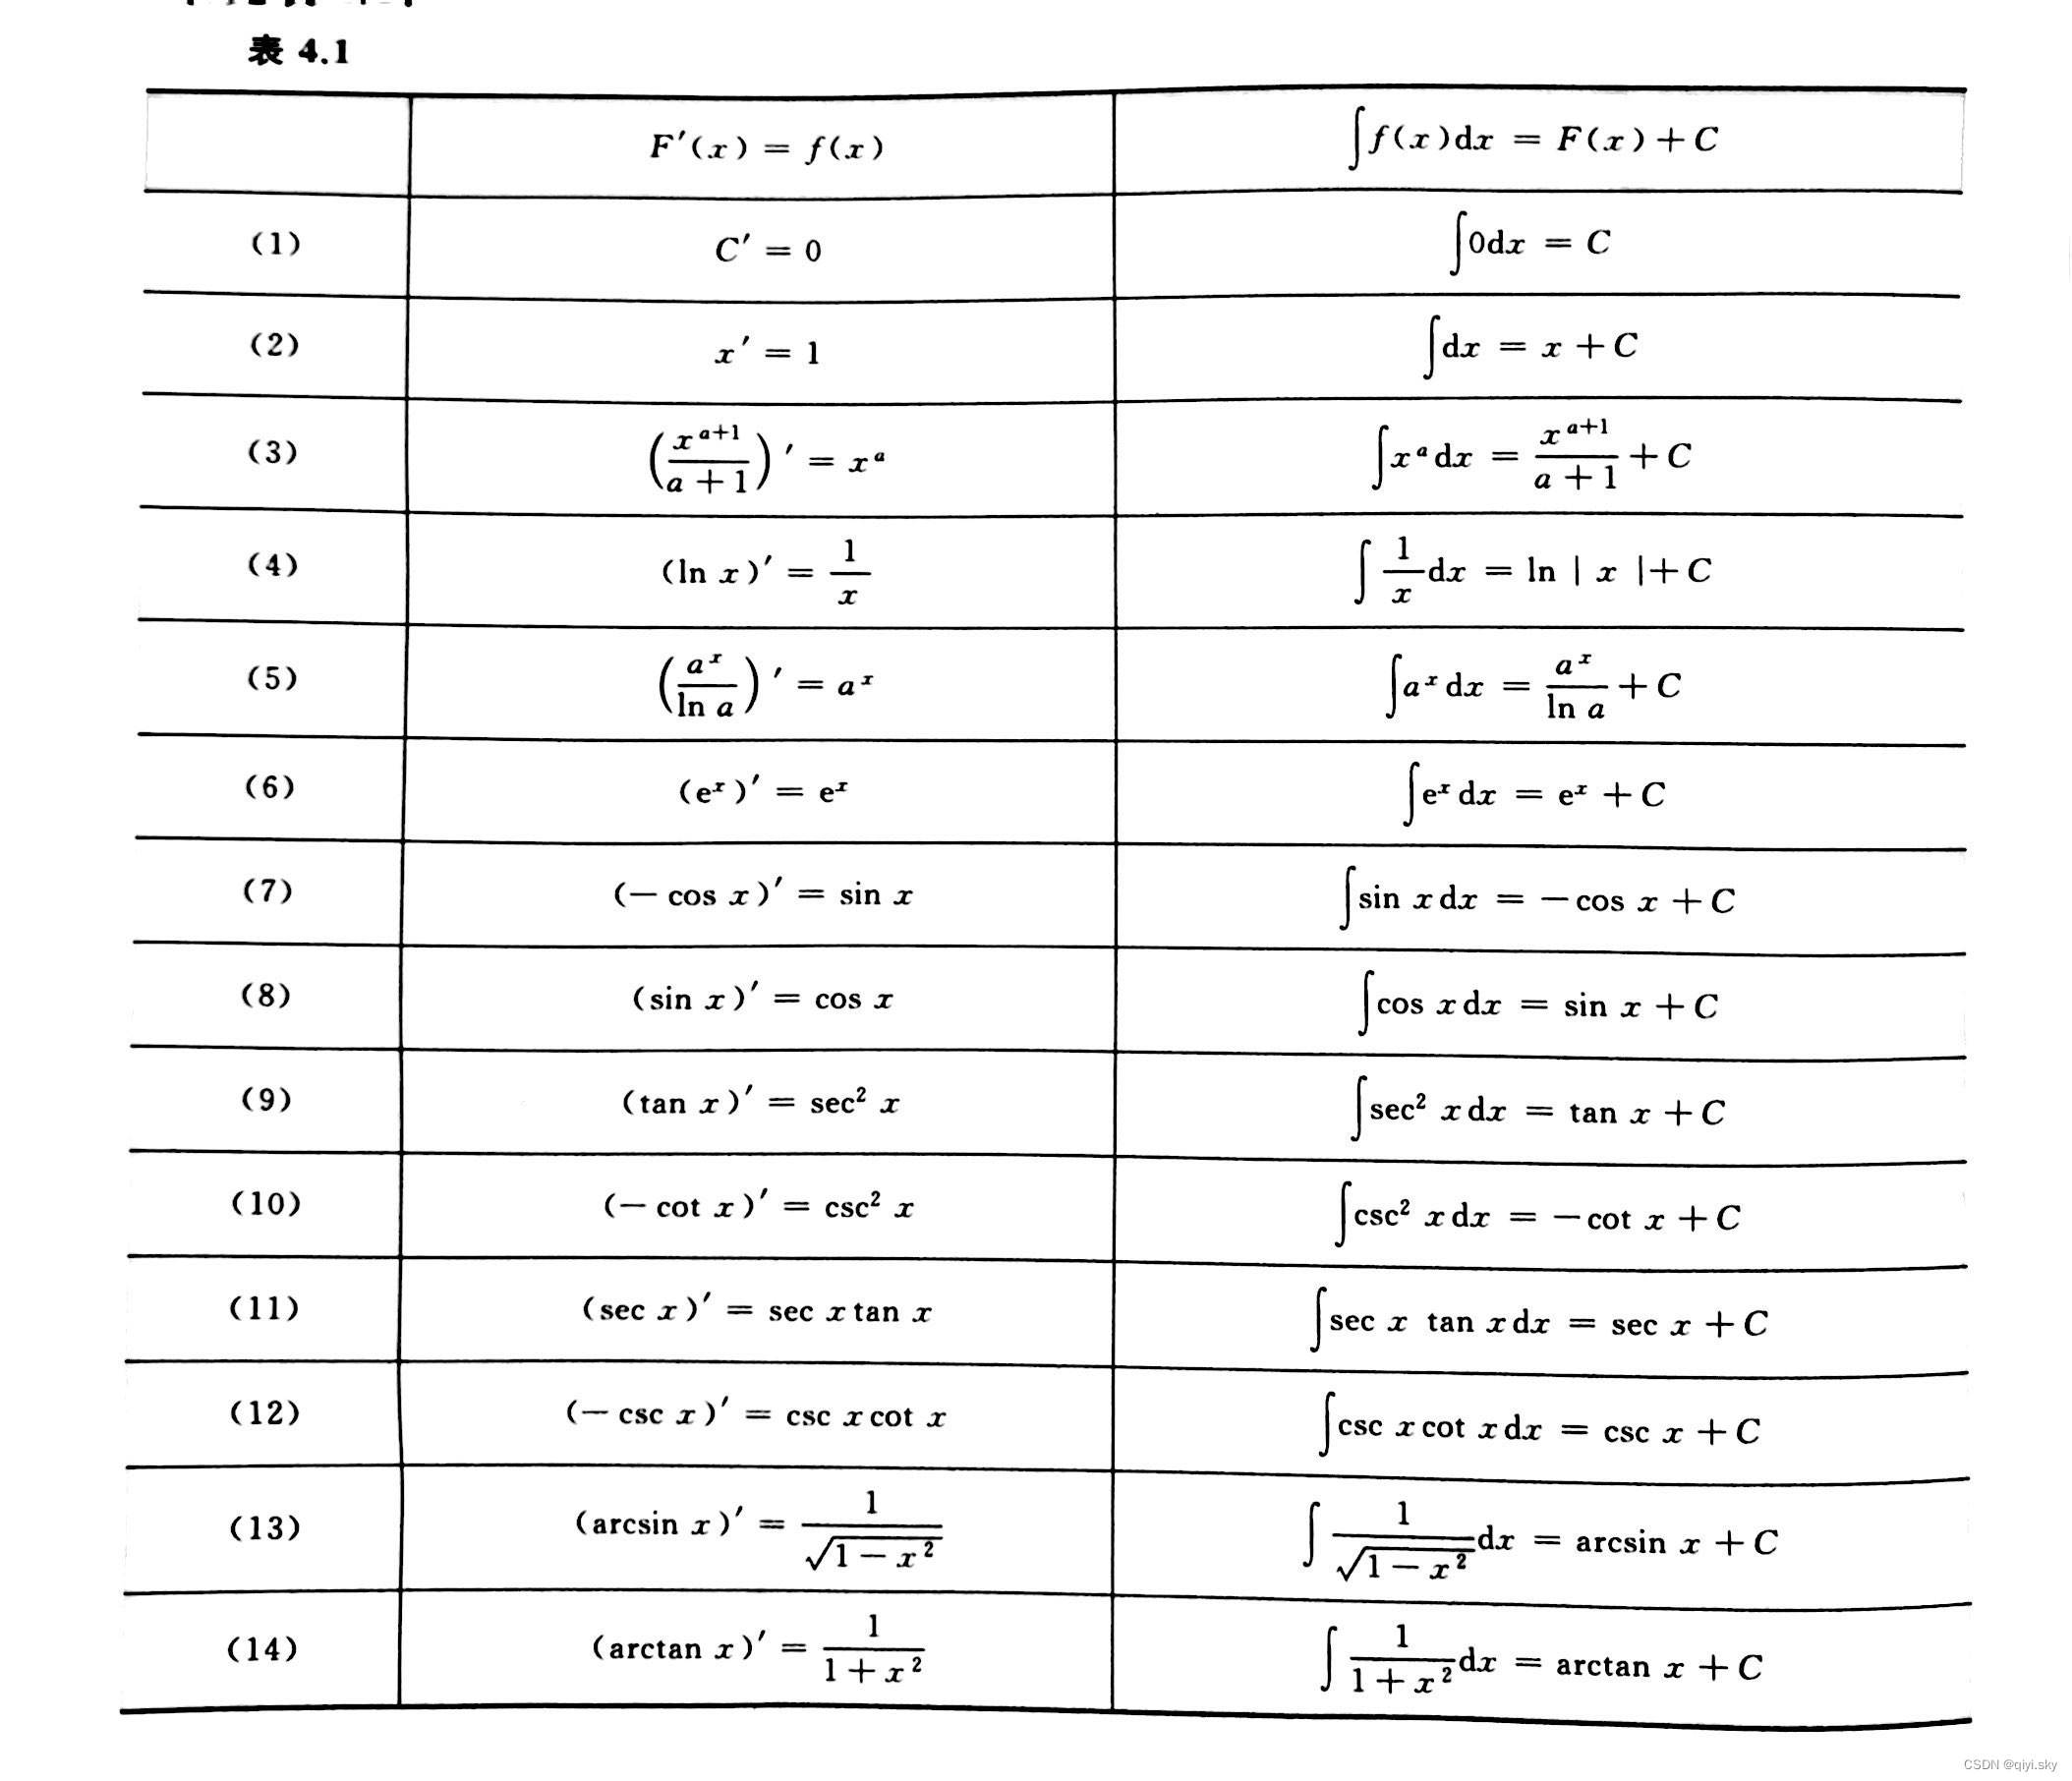 表 4.1
F′(x) = f(x) ∫f(x)dx = F(x)+C
(1) C′ = 0 ∫0dx = C
(2) x′ = 1 ∫dx = x+C
(3) (x^{a+1}/(a+1))′ = x^a ∫x^a dx = x^{a+1}/(a+1) +C
(4) (ln x)′ = 1/x ∫1/x dx = ln|x|+C
(5) (a^x/ln a)′ = a^x ∫a^x dx = a^x/ln a +C
(6) (e^x)′ = e^x ∫e^x dx = e^x +C
(7) (−cos x)′ = sin x ∫sin x dx = −cos x+C
(8) (sin x)′ = cos x ∫cos x dx = sin x+C
(9) (tan x)′ = sec² x ∫sec² x dx = tan x+C
(10) (−cot x)′ = csc² x ∫csc² x dx = −cot x+C
(11) (sec x)′ = sec x tan x ∫sec x tan x dx = sec x+C
(12) (−csc x)′ = csc x cot x ∫csc x cot x dx = csc x+C
(13) (arcsin x)′ = 1/√(1−x²) ∫1/√(1−x²) dx = arcsin x+C
(14) (arctan x)′ = 1/(1+x²) ∫1/(1+x²) dx = arctan x+C
CSDN @qiyi.sky